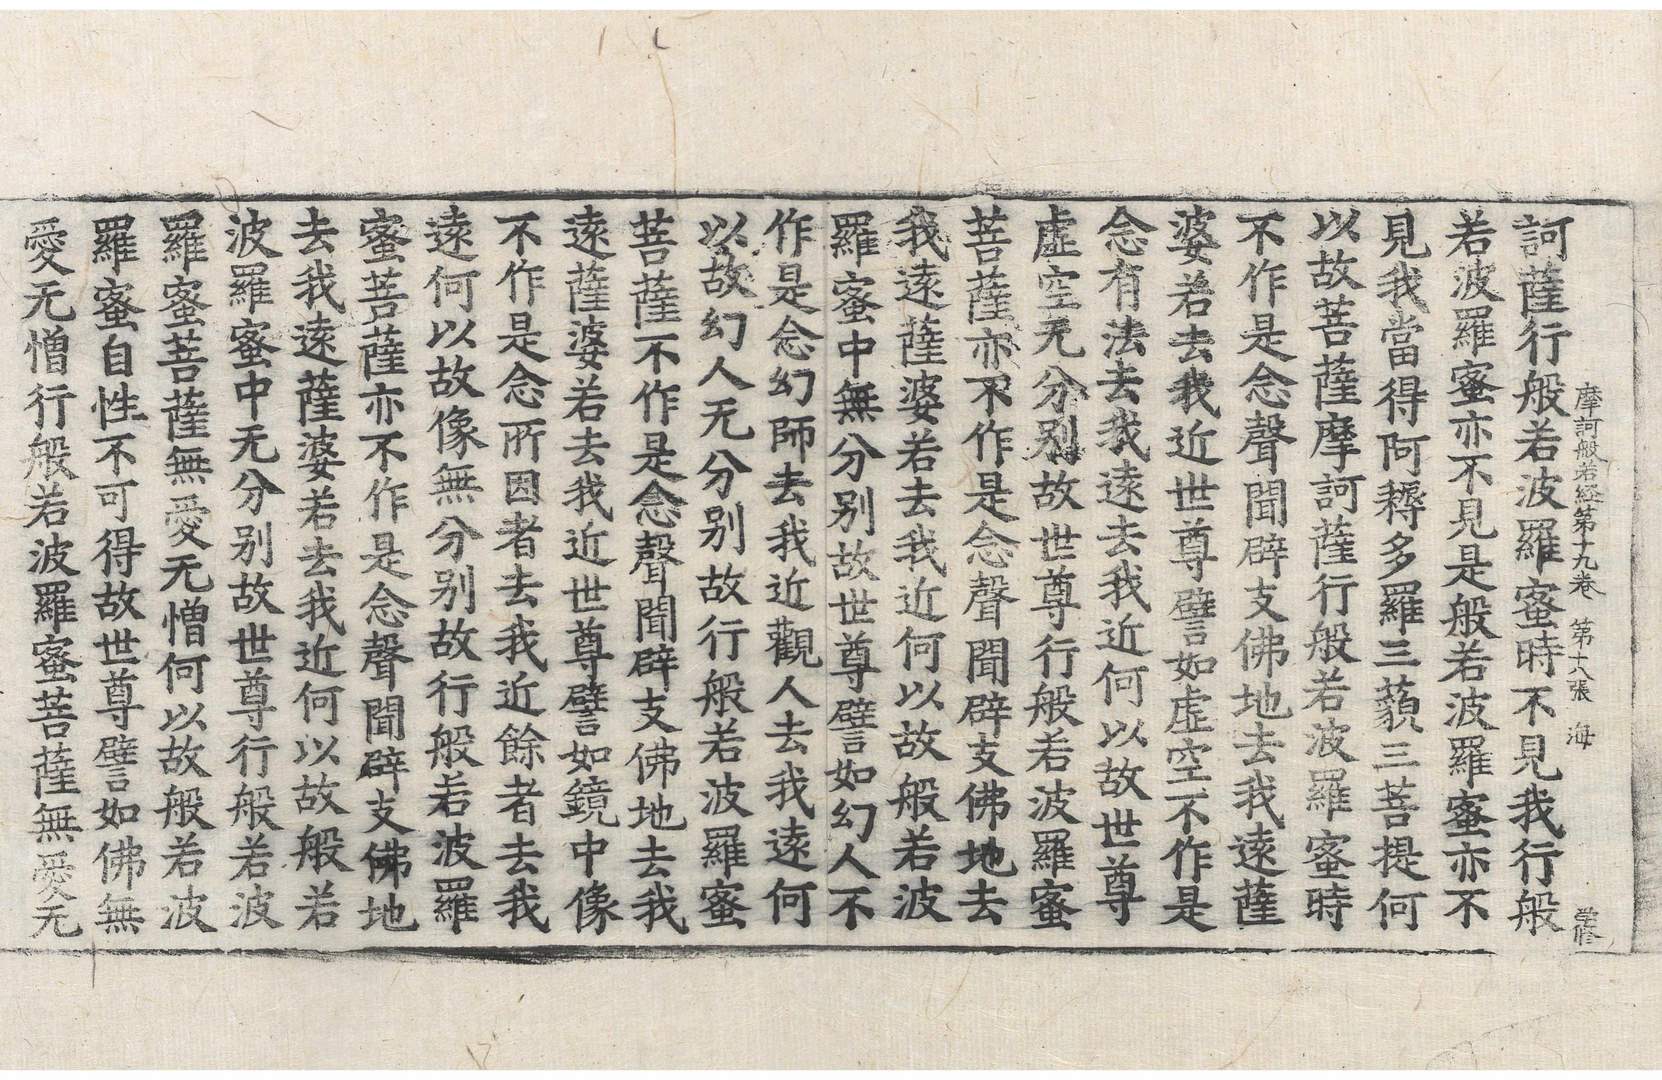 摩訶般若経第十九卷 第十八張 海
訶薩行般若波羅蜜時不見我行般
若波羅蜜亦不見是般若波羅蜜亦不
見我當得阿耨多羅三藐三菩提何
以故菩薩摩訶薩行般若波羅蜜時
不作是念聲聞辟支佛地去我遠薩
婆若去我近世尊譬如虛空不作是
念有法去我遠去我近何以故世尊
虛空无分别故世尊行般若波羅蜜
菩薩亦不作是念聲聞辟支佛地去
我遠薩婆若去我近何以故般若波
羅蜜中無分别故世尊譬如幻人不
作是念幻師去我近觀人去我遠何
以故幻人无分别故行般若波羅蜜
菩薩不作是念聲聞辟支佛地去我
遠薩婆若去我近世尊譬如鏡中像
不作是念所因者去我近餘者去我
遠何以故像無分别故行般若波羅
蜜菩薩亦不作是念聲聞辟支佛地
去我遠薩婆若去我近何以故般若
波羅蜜中无分别故世尊行般若波
羅蜜菩薩無愛无憎何以故般若波
羅蜜自性不可得故世尊譬如佛無
愛无憎行般若波羅蜜菩薩無愛无